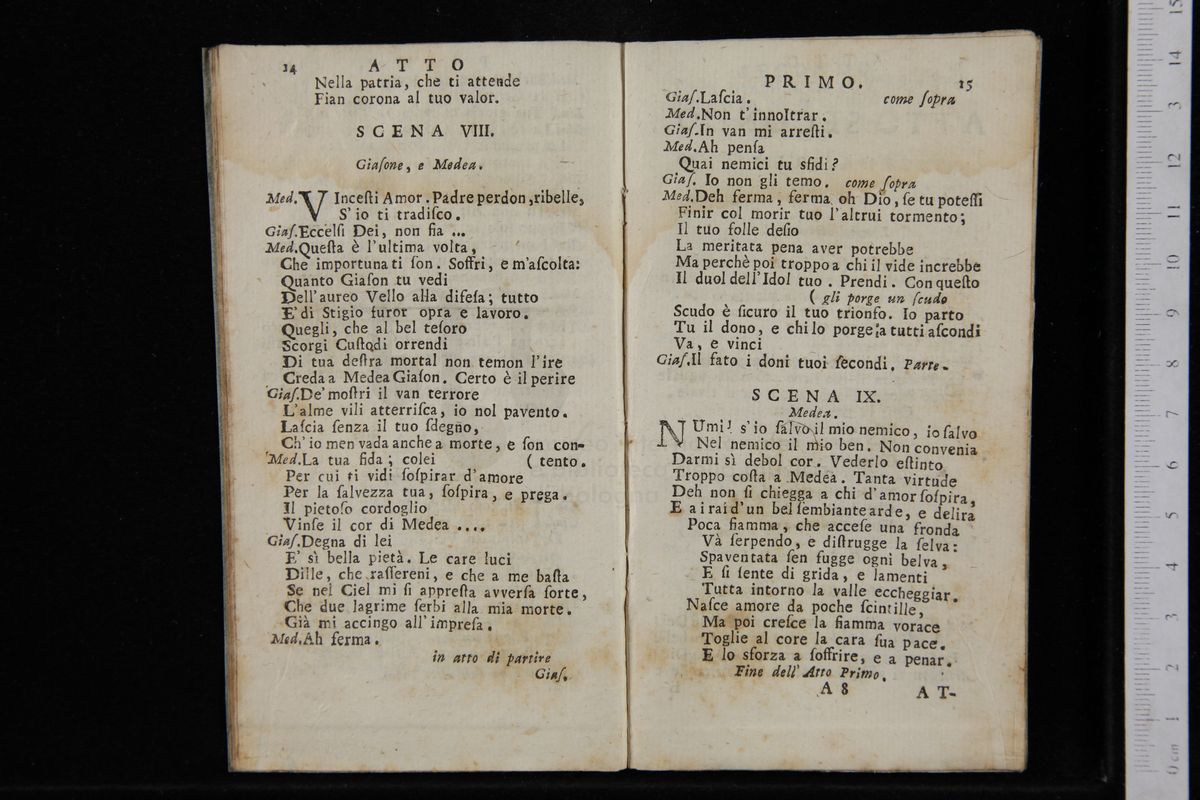 14 ATTO
Nella patria, che ti attende
Fian corona al tuo valor.
SCENA VIII.
Giaſone, e Medea.
Med. VInceſti Amor. Padre perdon, ribelle,
S'io ti tradiſco.
Giaſ. Eccelſi Dei, non ſia ...
Med. Queſta è l'ultima volta,
Che importuna ti ſon. Soffri, e m'aſcolta:
Quanto Giaſon tu vedi
Dell'aureo Vello alla difeſa; tutto
E' di Stigio furor opra e lavoro.
Quegli, che al bel teſoro
Scorgi Cuſtodi orrendi
Di tua deſtra mortal non temon l'ire
Creda a Medea Giaſon. Certo è il perire
Giaſ. De' moſtri il van terrore
L'alme vili atterriſca, io nol pavento.
Laſcia ſenza il tuo ſdegno,
Ch'io men vada anche a morte, e ſon con-
Med. La tua fida; colei ( tento.
Per cui ti vidi ſoſpirar d'amore
Per la ſalvezza tua, ſoſpira, e prega.
Il pietoſo cordoglio
Vinſe il cor di Medea ....
Giaſ. Degna di lei
E' sì bella pietà. Le care luci
Dille, che raſſereni, e che a me baſta
Se nel Ciel mi ſi appreſta avverſa ſorte,
Che due lagrime ſerbi alla mia morte.
Già mi accingo all'impreſa.
Med. Ah ferma.
in atto di partire
Giaſ.
PRIMO. 15
Giaſ. Laſcia. come ſopra
Med. Non t'innoltrar.
Giaſ. In van mi arreſti.
Med. Ah penſa
Quai nemici tu sfidi?
Giaſ. Io non gli temo. come ſopra
Med. Deh ferma, ferma oh Dio, ſe tu poteſſi
Finir col morir tuo l'altrui tormento;
Il tuo folle deſio
La meritata pena aver potrebbe
Ma perchè poi troppo a chi il vide increbbe
Il duol dell'Idol tuo. Prendi. Con queſto
( gli porge un ſcudo
Scudo è ſicuro il tuo trionfo. Io parto
Tu il dono, e chi lo porge, a tutti aſcondi
Va, e vinci
Giaſ. Il fato i doni tuoi ſecondi. Parte.
SCENA IX.
Medea.
NUmi! s'io ſalvo il mio nemico, io ſalvo
Nel nemico il mio ben. Non convenia
Darmi sì debol cor. Vederlo eſtinto
Troppo coſta a Medea. Tanta virtude
Deh non ſi chiegga a chi d'amor ſoſpira,
E a i rai d'un bel ſembiante arde, e delira
Poca fiamma, che acceſe una fronda
Và ſerpendo, e diſtrugge la ſelva:
Spaventata ſen fugge ogni belva,
E ſi ſente di grida, e lamenti
Tutta intorno la valle eccheggiar.
Naſce amore da poche ſcintille,
Ma poi creſce la fiamma vorace
Toglie al core la cara ſua pace.
E lo sforza a ſoffrire, e a penar.
Fine dell'Atto Primo.
A 8 AT-
15
14
3
12
11
10
9
8
7
6
5
4
3
2
1
0 cm